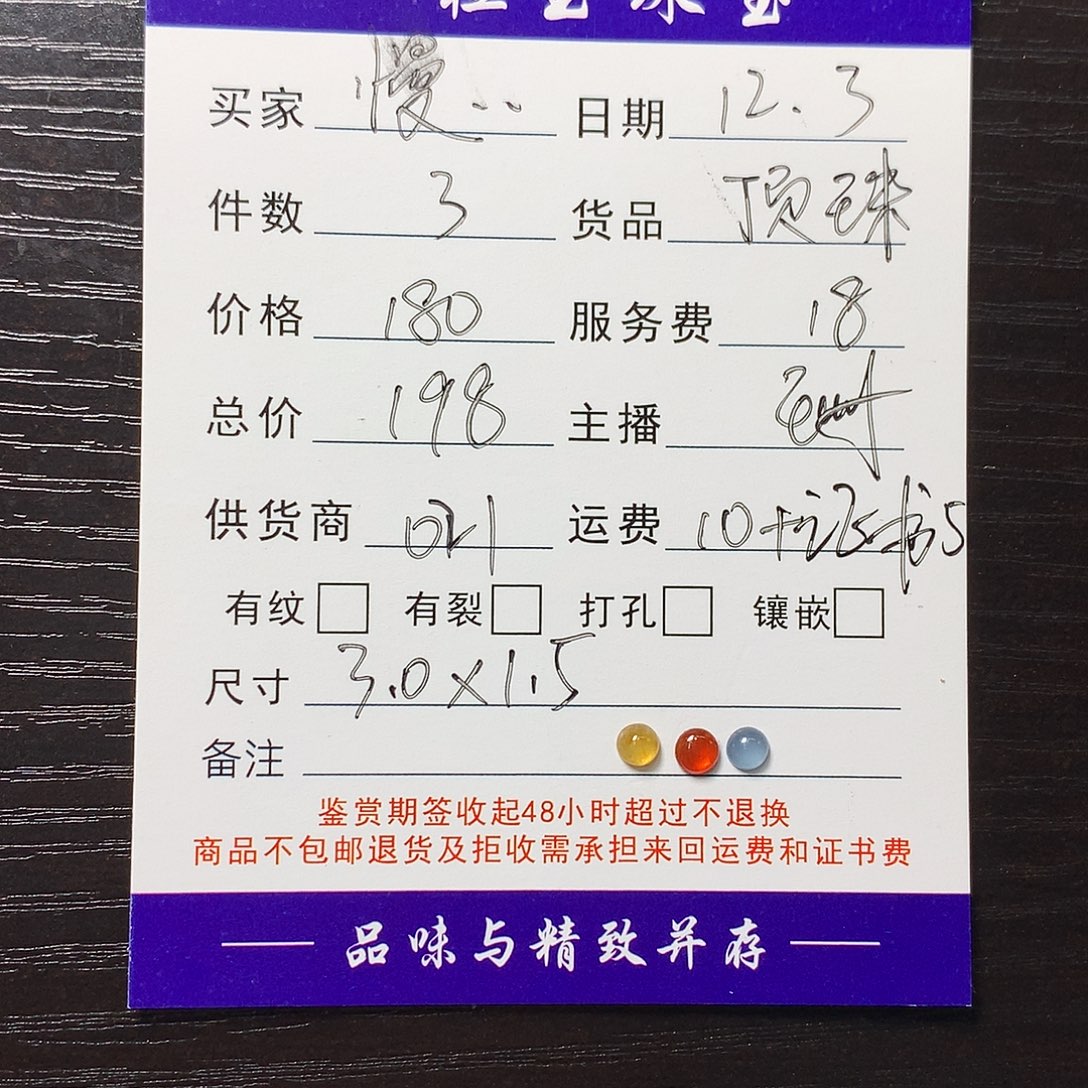 买家 慢.. 日期 12.3
件数 3 货品 顶珠
价格 180 服务费 18
总价 198 主播
供货商 021 运费 10+证书5
有纹 有裂 打孔 镶嵌
尺寸 3.0×1.5
备注
鉴赏期签收起48小时超过不退换
商品不包邮退货及拒收需承担来回运费和证书费
品味与精致并存